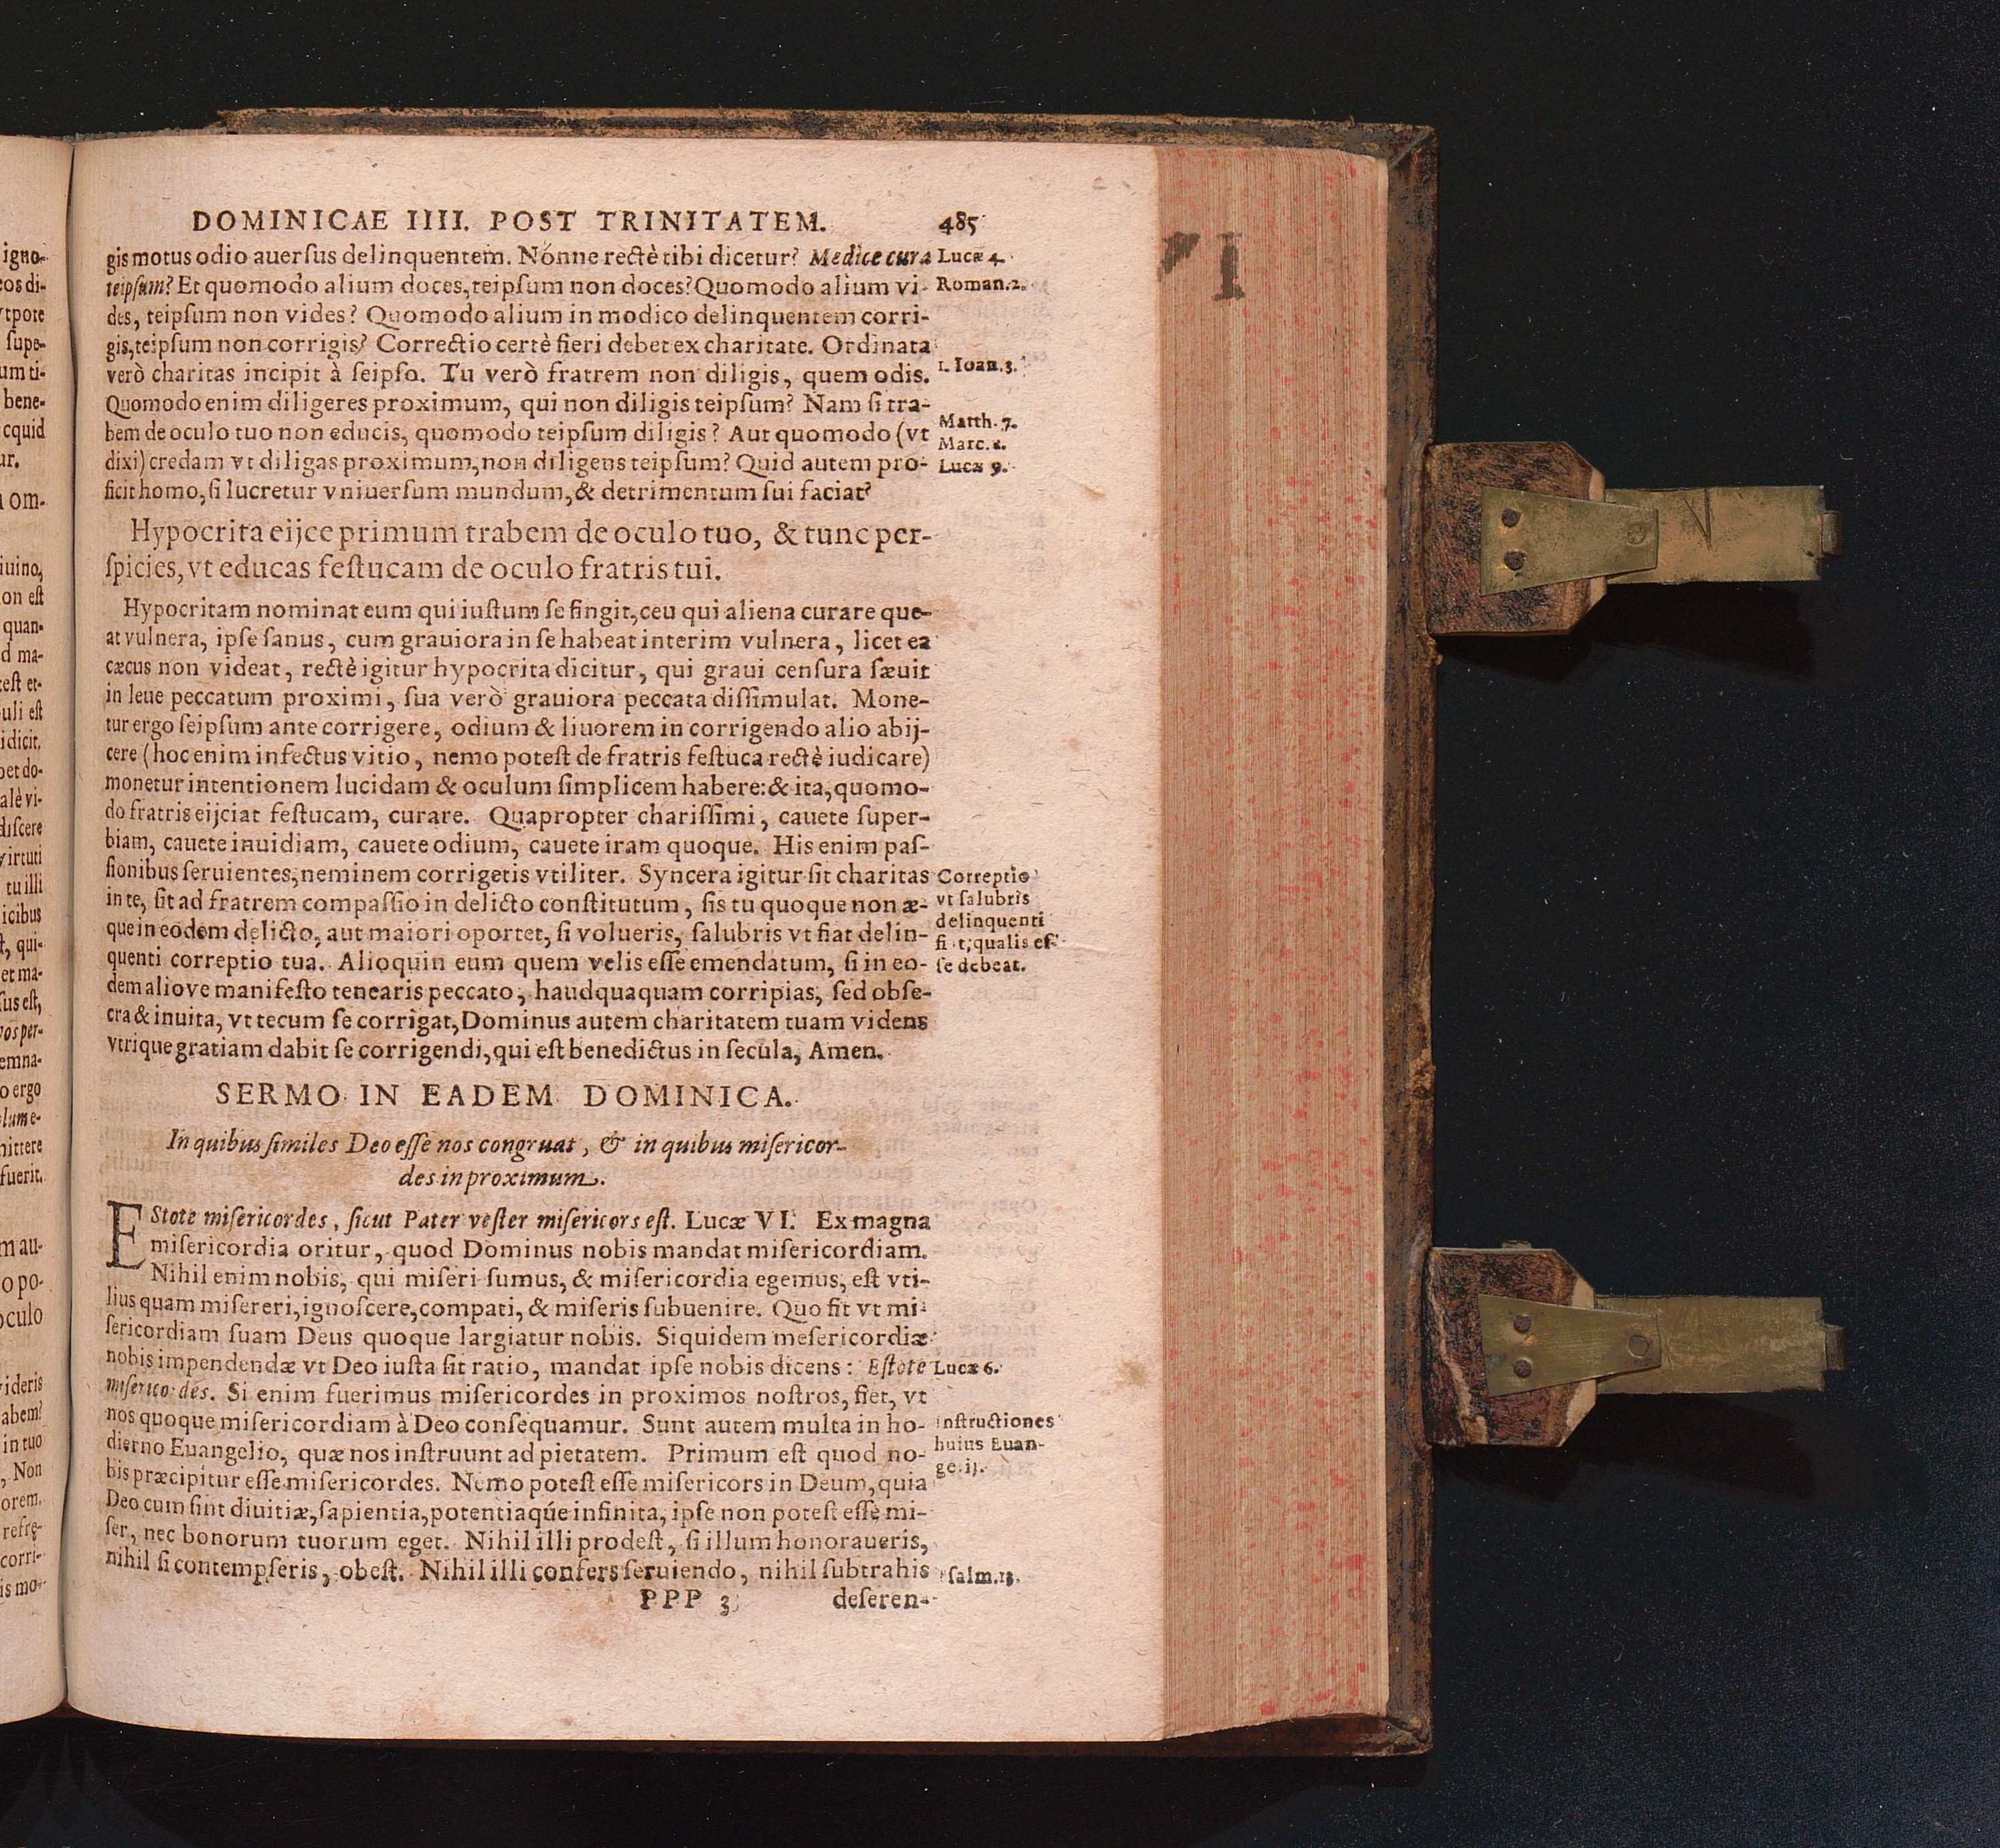 DOMINICAE IIII. POST TRINITATEM. 485
gis motus odio auerſus delinquentem. Nónne rectè tibi dicetur? Medice cura
teipſum? Et quomodo alium doces, teipſum non doces? Quomodo alium vi-
des, teipſum non vides? Quomodo alium in modico delinquentem corri-
gis, teipſum non corrigis? Correctio certè fieri debet ex charitate. Ordinata
verò charitas incipit à ſeipſo. Tu verò fratrem non diligis, quem odis.
Quomodo enim diligeres proximum, qui non diligis teipſum? Nam ſi tra-
bem de oculo tuo non educis, quomodo teipſum diligis? Aut quomodo (vt
dixi) credam vt diligas proximum, non diligens teipſum? Quid autem pro-
ficit homo, ſi lucretur vniuerſum mundum, & detrimentum ſui faciat?
Hypocrita eijce primum trabem de oculo tuo, & tunc per-
ſpicies, vt educas feſtucam de oculo fratris tui.
Hypocritam nominat eum qui iuſtum ſe fingit, ceu qui aliena curare que-
at vulnera, ipſe ſanus, cum grauiora in ſe habeat interim vulnera, licet ea
cæcus non videat, rectè igitur hypocrita dicitur, qui graui cenſura ſæuit
in leue peccatum proximi, ſua verò grauiora peccata diſſimulat. Mone-
tur ergo ſeipſum ante corrigere, odium & liuorem in corrigendo alio abij-
cere (hoc enim infectus vitio, nemo poteſt de fratris feſtuca rectè iudicare)
monetur intentionem lucidam & oculum ſimplicem habere: & ita, quomo-
do fratris eijciat feſtucam, curare. Quapropter chariſſimi, cauete ſuper-
biam, cauete inuidiam, cauete odium, cauete iram quoque. His enim paſ-
ſionibus ſeruientes, neminem corrigetis vtiliter. Syncera igitur ſit charitas
in te, ſit ad fratrem compaſſio in delicto conſtitutum, ſis tu quoque non æ-
que in eodem delicto, aut maiori oportet, ſi volueris, ſalubris vt fiat delin-
quenti correptio tua. Alioquin eum quem velis eſſe emendatum, ſi in eo-
dem aliove manifeſto tenearis peccato, haudquaquam corripias, ſed obſe-
cra & inuita, vt tecum ſe corrigat, Dominus autem charitatem tuam videns
vtrique gratiam dabit ſe corrigendi, qui eſt benedictus in ſecula, Amen.
SERMO IN EADEM DOMINICA.
In quibus ſimiles Deo eſſe nos congruat, & in quibus miſericor-
des in proximum.
EStote miſericordes, ſicut Pater veſter miſericors eſt. Lucæ VI. Ex magna
miſericordia oritur, quod Dominus nobis mandat miſericordiam.
Nihil enim nobis, qui miſeri ſumus, & miſericordia egemus, eſt vti-
lius quam miſereri, ignoſcere, compati, & miſeris ſubuenire. Quo fit vt mi-
ſericordiam ſuam Deus quoque largiatur nobis. Siquidem meſericordiæ
nobis impendendæ vt Deo iuſta ſit ratio, mandat ipſe nobis dicens: Eſtote
miſerico des. Si enim fuerimus miſericordes in proximos noſtros, fiet, vt
nos quoque miſericordiam à Deo conſequamur. Sunt autem multa in ho-
dierno Euangelio, quæ nos inſtruunt ad pietatem. Primum eſt quod no-
bis præcipitur eſſe miſericordes. Nemo poteſt eſſe miſericors in Deum, quia
Deo cum ſint diuitiæ, ſapientia, potentiaq́ue infinita, ipſe non poteſt eſſe mi-
ſer, nec bonorum tuorum eget. Nihil illi prodeſt, ſi illum honoraueris,
nihil ſi contempſeris, obeſt. Nihil illi confers ſeruiendo, nihil ſubtrahis
PPP 3 deſeren-
Lucæ 4.
Roman.2.
1. Ioan.3.
Matth. 7.
Marc.
Lucæ 9.
Correptio
vt ſalubris
delinquenti
fi t; qualis eſ-
ſe debeat.
Lucæ 6.
Inſtructiones
huius Euan-
ge ij.
ſalm.